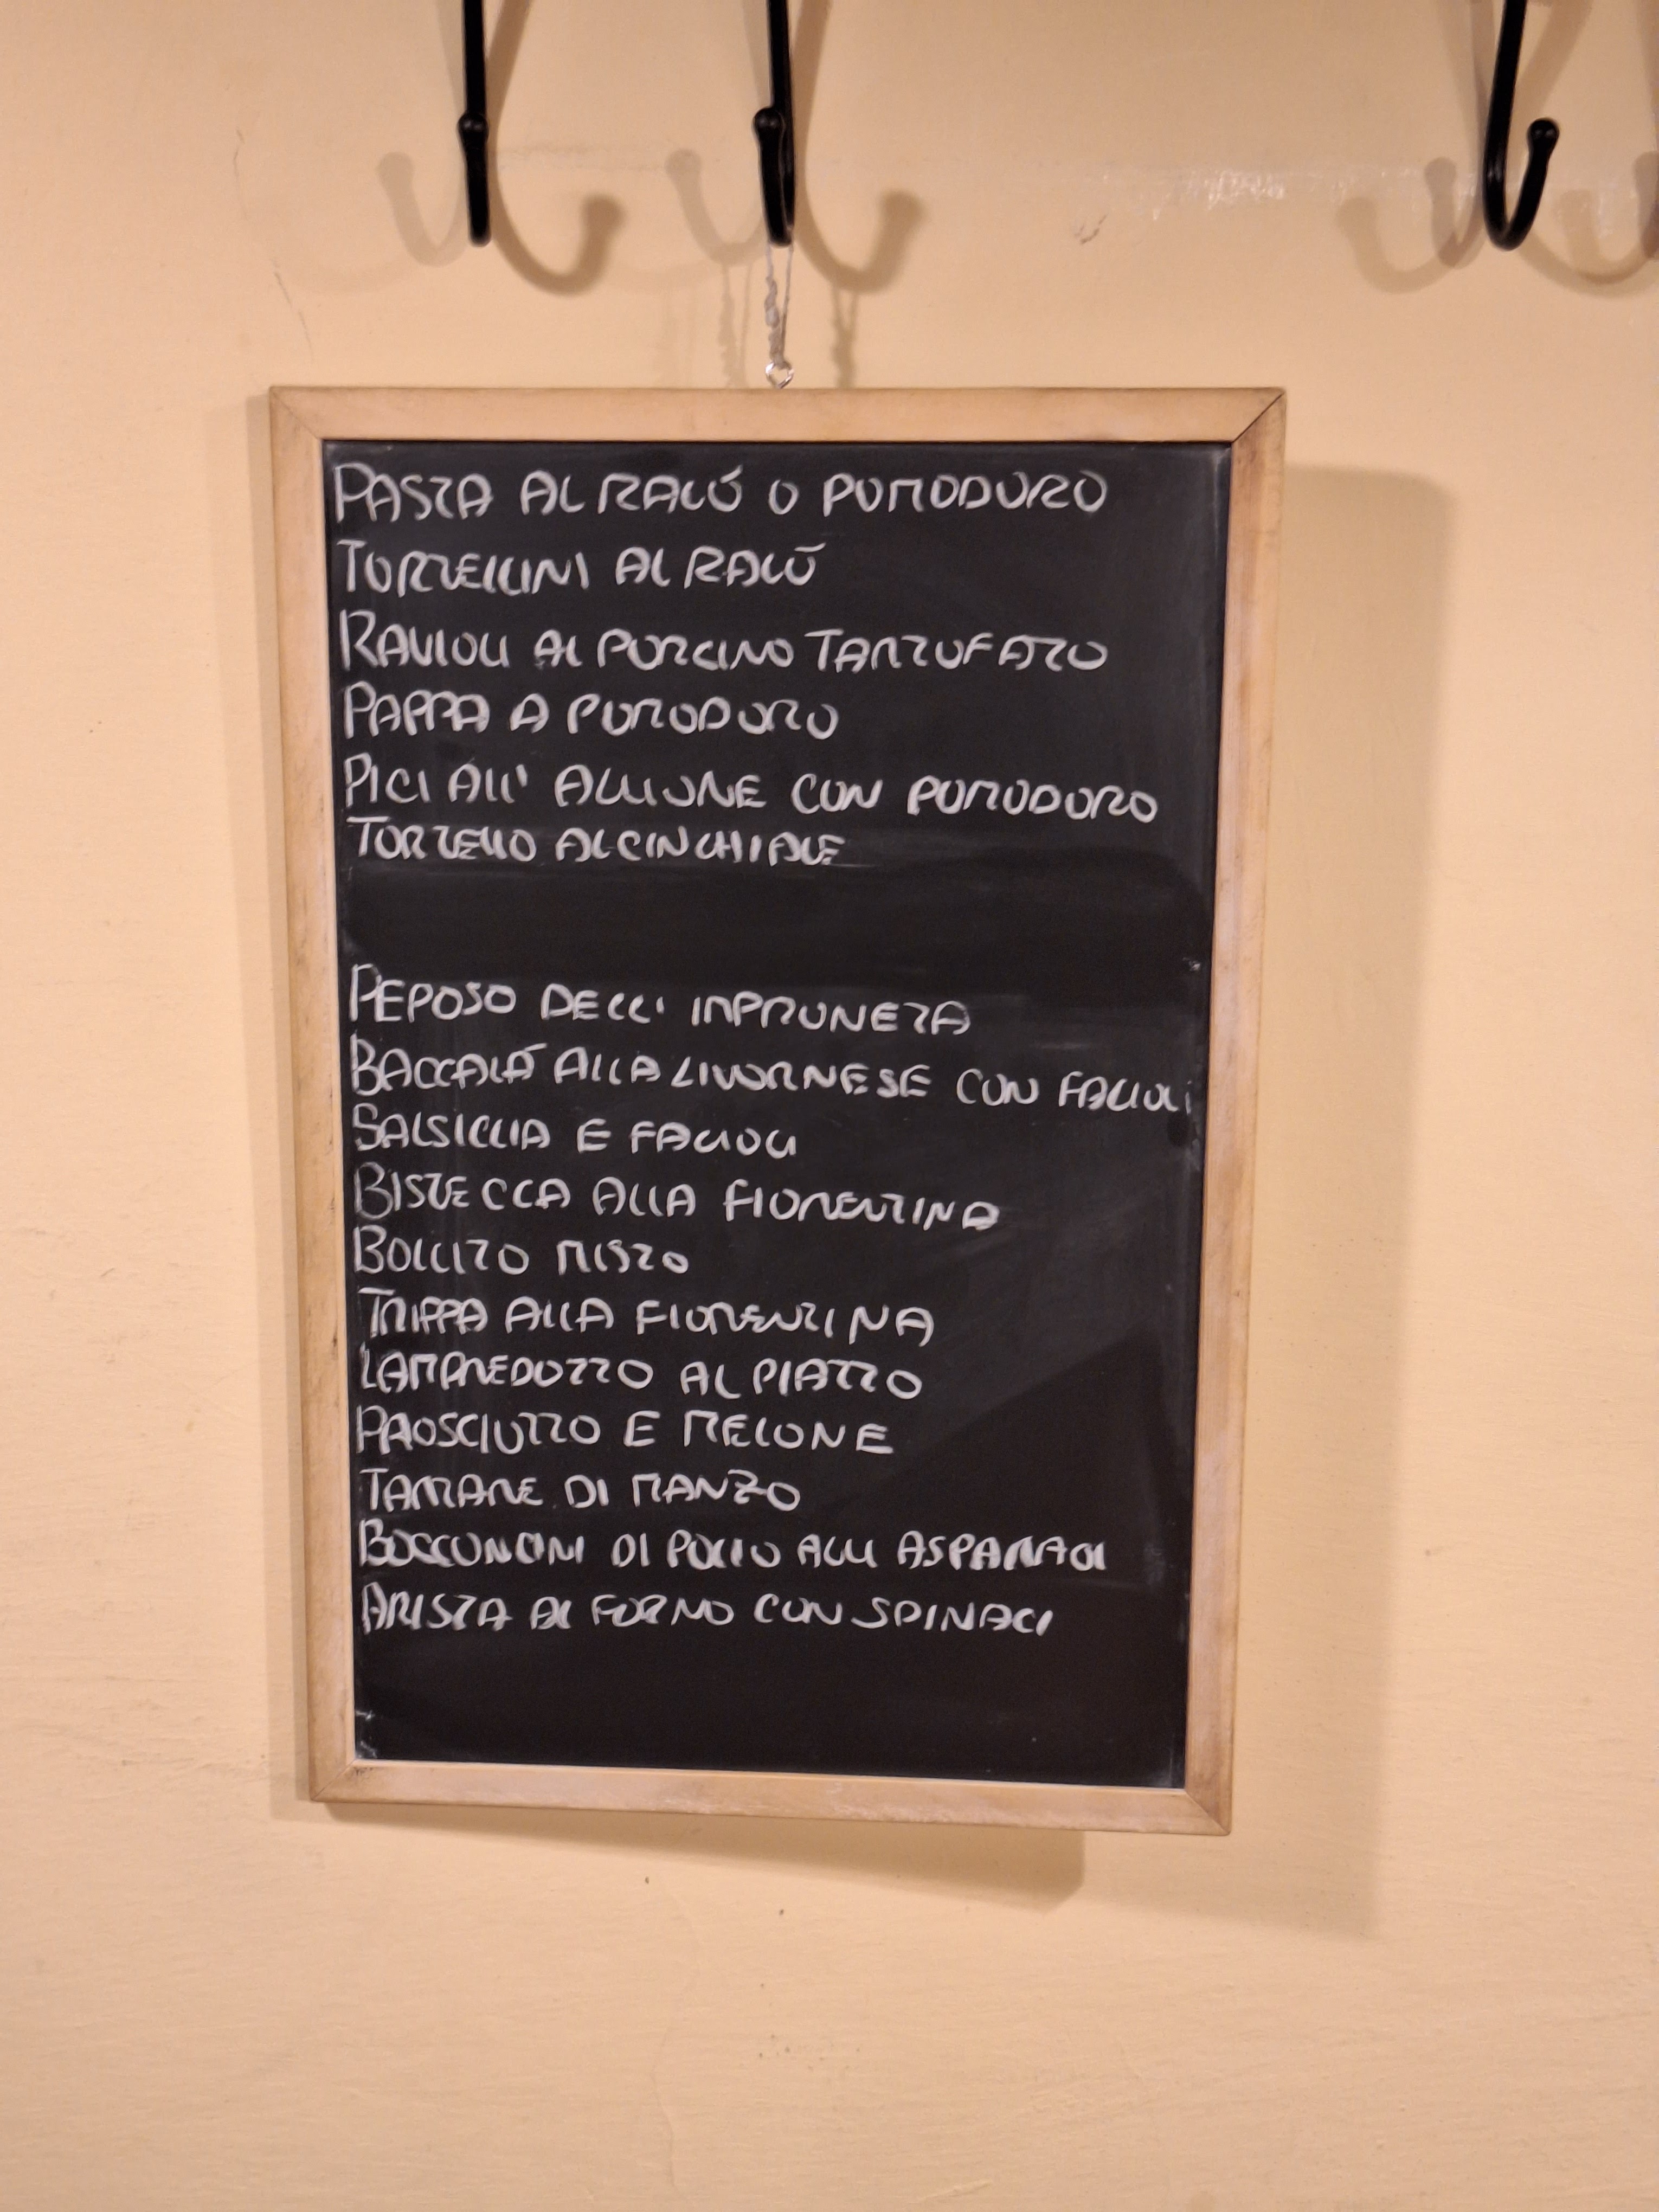 PASTA AL RAGÚ O POMODORO
TORTELLINI AL RAGÚ
RAVIOLI AL PORCINO TARTUFATO
PAPPA A POMODORO
PICI ALL' AGLIONE CON POMODORO
TORTELLO AL CINCHIALE
PEPOSO DELL' INPRUNETA
BACCALÁ ALLA LIVORNESE CON FAGIOLI
SALSICCIA E FAGIOLI
BISTECCA ALLA FIORENTINA
BOLLITO MISTO
TRIPPA ALLA FIORENTINA
LAMPREDOTTO AL PIATTO
PROSCIUTTO E MELONE
TARTARE DI MANZO
BOCCONCINI DI POLLO AGLI ASPARAGI
ARISTA AL FORNO CON SPINACI